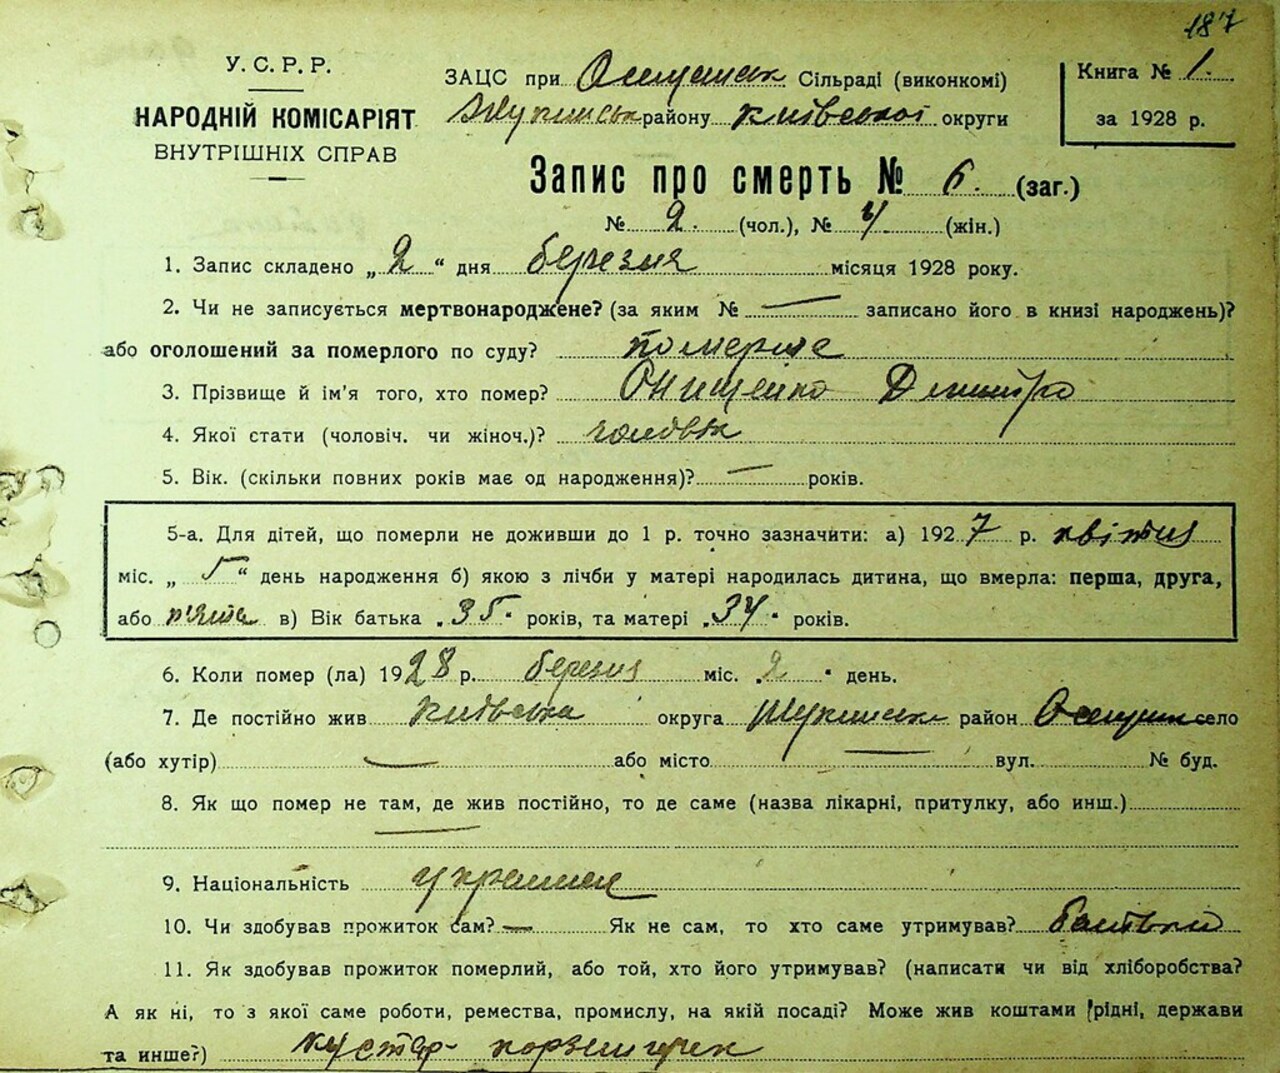 187
У. С. Р. Р.
НАРОДНІЙ КОМІСАРІЯТ
ВНУТРІШНІХ СПРАВ
ЗАЦС при Сільраді (виконкомі)
району Київської округи
Книга № 1.
за 1928 р.
Запис про смерть № 6. (заг.)
№ 2. (чол.), № 4. (жін.)
1. Запис складено „ 2 “ дня березня місяця 1928 року.
2. Чи не записується мертвонароджене? (за яким № — записано його в книзі народжень)?
або оголошений за померлого по суду? померше
3. Прізвище й ім'я того, хто помер? Онищенко Дмитро
4. Якої стати (чоловіч. чи жіноч.)? чоловік
5. Вік. (скільки повних років має од народження)? — років.
5-а. Для дітей, що померли не доживши до 1 р. точно зазначити: а) 1927 р. квітня
міс. „ 5 “ день народження б) якою з лічби у матері народилась дитина, що вмерла: перша, друга,
або п'ята в) Вік батька „35“ років, та матері „34“ років.
6. Коли помер (ла) 1928 р. березня міс. „2“ день.
7. Де постійно жив Київська округа район село
(або хутір) — або місто — вул. № буд.
8. Як що помер не там, де жив постійно, то де саме (назва лікарні, притулку, або инш.)
—
9. Національність українец
10. Чи здобував прожиток сам? — Як не сам, то хто саме утримував? батьки
11. Як здобував прожиток померлий, або той, хто його утримував? (написати чи від хліборобства?
А як ні, то з якої саме роботи, ремества, промислу, на якій посаді? Може жив коштами рідні, держави
та инше?) кустар-